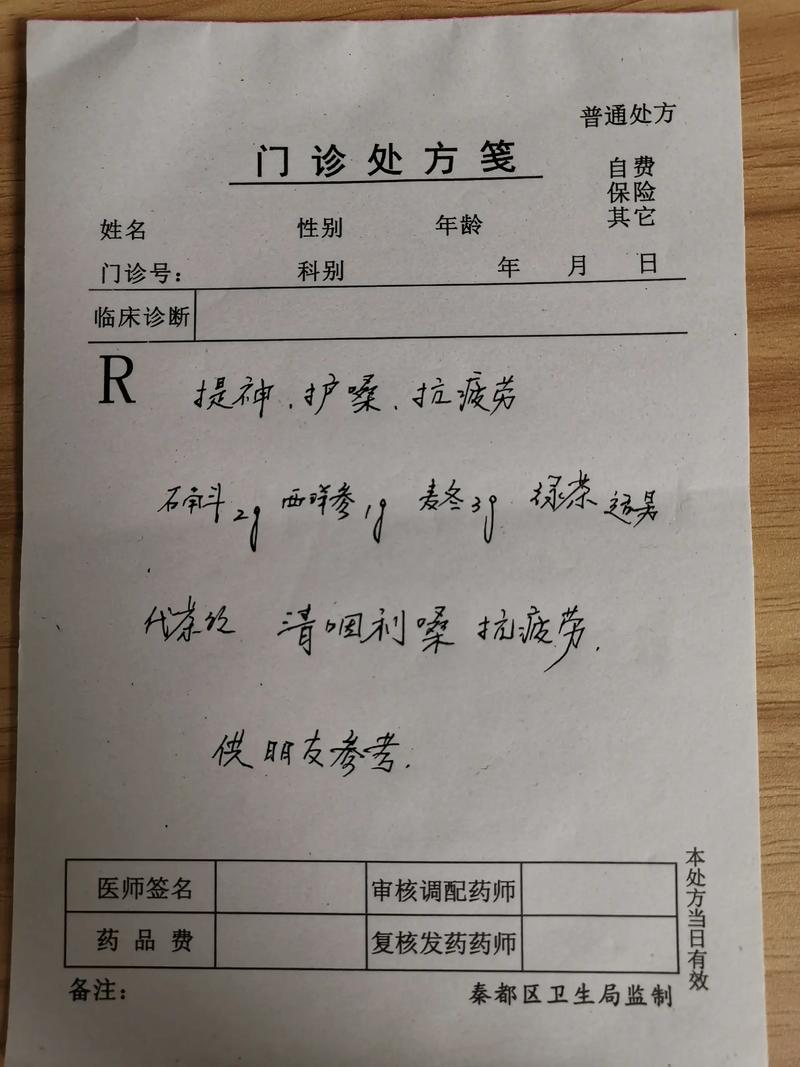 普通处方
门诊处方笺
自费
保险
其它
姓名 性别 年龄
门诊号： 科别 年 月 日
临床诊断
R 提神、护嗓、抗疲劳
石斛2g 西洋参1g 麦冬3g 绿茶适量
代茶饮 清咽利嗓 抗疲劳.
供朋友参考.
医师签名 审核调配药师
药品费 复核发药药师
本处方当日有效
备注： 秦都区卫生局监制